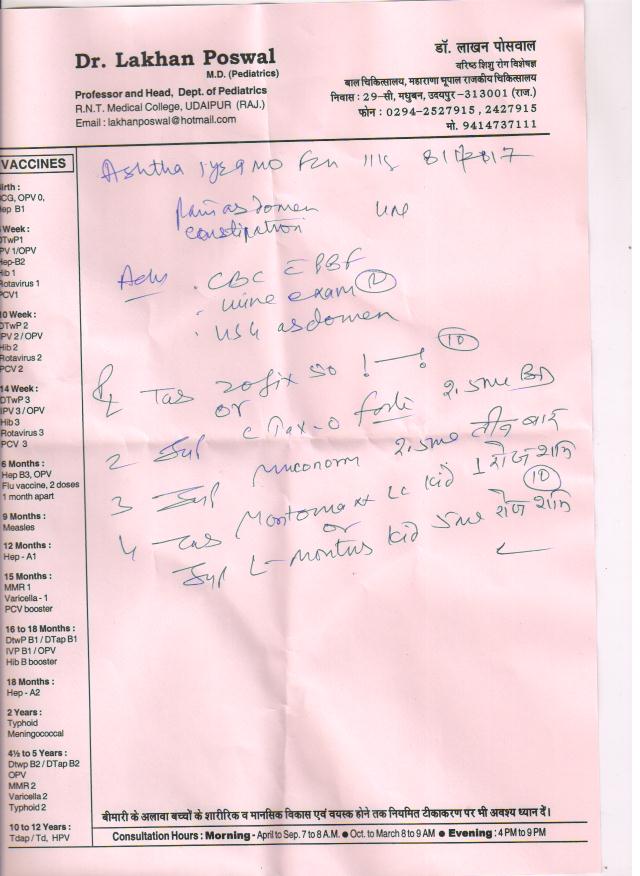 Dr. Lakhan Poswal
M.D. (Pediatrics)
Professor and Head, Dept. of Pediatrics
R.N.T. Medical College, UDAIPUR (RAJ.)
Email : lakhanposwal@hotmail.com
डॉ. लाखन पोसवाल
वरिष्ठ शिशु रोग विशेषज्ञ
बाल चिकित्सालय, महाराणा भूपाल राजकीय चिकित्सालय
निवास : 29-सी, मधुबन, उदयपुर-313001 (राज.)
फोन : 0294-2527915, 2427915
मो. 9414737111
VACCINES
irth :
CG, OPV 0,
ep B1
Week :
DTwP1
PV 1/OPV
Hep-B2
ib 1
Rotavirus 1
PCV1
0 Week :
DTwP 2
PV 2 / OPV
Hib 2
Rotavirus 2
PCV 2
14 Week :
DTwP 3
IPV 3 / OPV
Hib 3
Rotavirus 3
PCV 3
6 Months :
Hep B3, OPV
Flu vaccine, 2 doses
1 month apart
9 Months :
Measles
12 Months :
Hep - A1
15 Months :
MMR 1
Varicella - 1
PCV booster
16 to 18 Months :
DtwP B1 / DTap B1
IVP B1 / OPV
Hib B booster
18 Months :
Hep - A2
2 Years :
Typhoid
Meningococcal
4½ to 5 Years :
Dtwp B2 / DTap B2
OPV
MMR 2
Varicella 2
Typhoid 2
10 to 12 Years :
Tdap / Td, HPV
Ashtha
pain abdomen
constipation
Adv . CBC
. urine exam
. USG abdomen
Tab
or
2 Syp forte 2.5ml BD
3 Syp 2.5ml तीन बार
4 Tab kid 1 रोज शाम 10
or
Syp kid 5ml रोज शाम
बीमारी के अलावा बच्चों के शारीरिक व मानसिक विकास एवं वयस्क होने तक नियमित टीकाकरण पर भी अवश्य ध्यान दें।
Consultation Hours : Morning - April to Sep. 7 to 8 A.M. ● Oct. to March 8 to 9 AM ● Evening : 4 PM to 9 PM